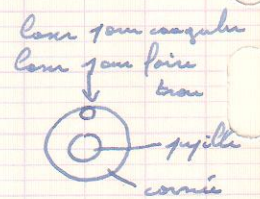 laser pour coaguler
laser pour faire
trou
pupille
cornée